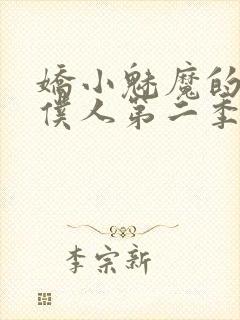 嬌小魅魔的
僕人第二季
李宗新